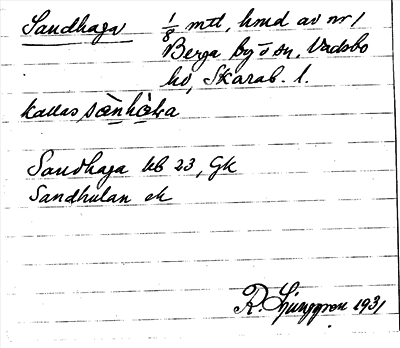 Sandhaga 1/8 mtl, hmd av nr 1
Berga by o sn, Vadsbo
hd, Skarab. l.
kallas sànhàga
Sandhaga kb 23, Gk
Sandhulan ek
R. Ljunggren 1931